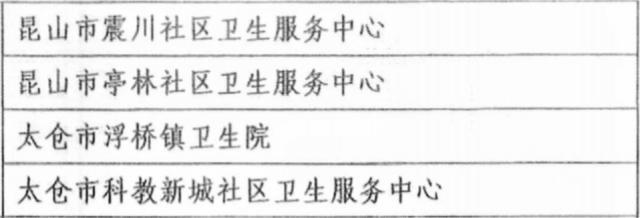 昆山市震川社区卫生服务中心
昆山市亭林社区卫生服务中心
太仓市浮桥镇卫生院
太仓市科教新城社区卫生服务中心